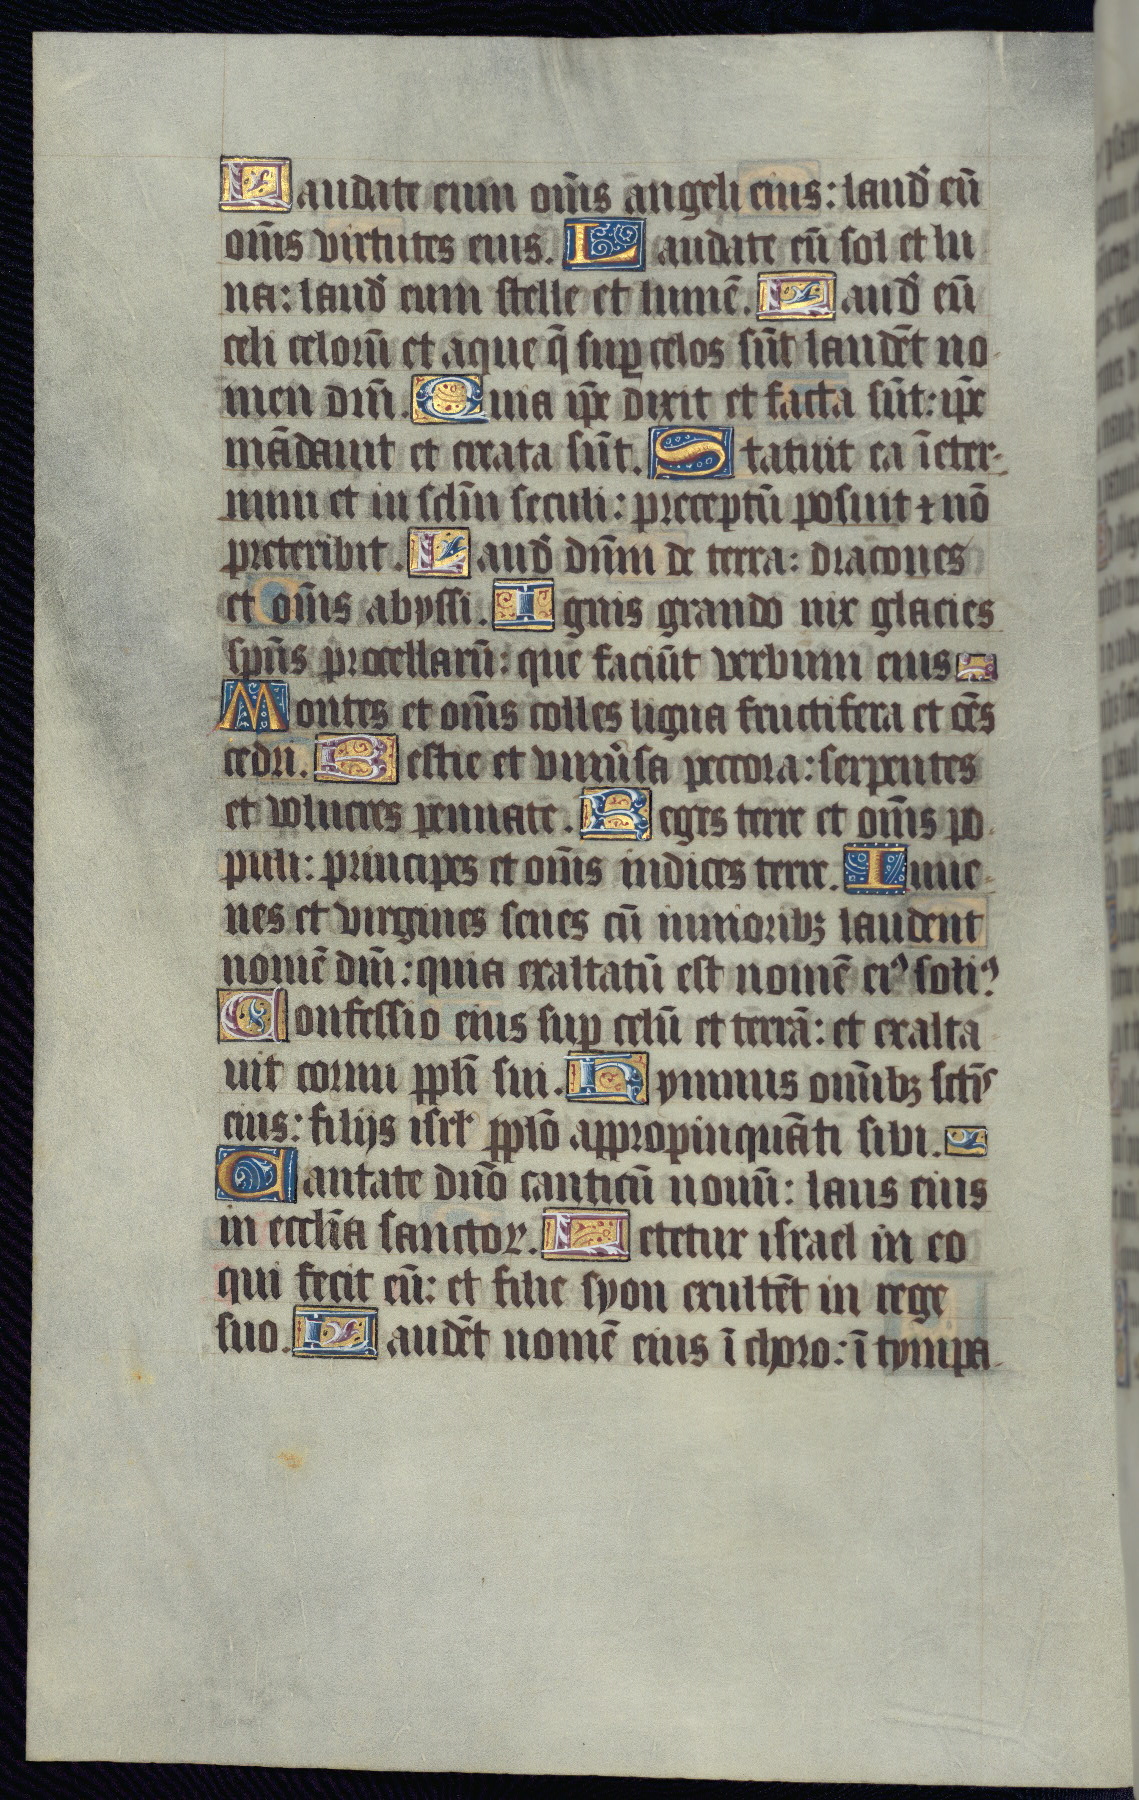 Laudate eum om̄is angeli eius: laud̉ eū
om̄is virtutes eius. Laudate eū sol et lu
na: laud̉ eum stelle et lumē. Laud̉ eū
celi celorū et aque q̄ suꝑ celos sūt laudēt no-
men dm̄i. Quia ip̄e dixit et facta sūt: ip̄e
mādauit et creata sūt. Statuit ea ī eter-
num et in sclm̄ seculi: preceptū posuit ⁊ nō
preteribit. Laud̉ dn̄m de terra: dracones
et om̄is abyssi. Ignis grando nix glacies
spūs procellarū: que faciūt verbum eius
Montes et om̄is colles ligna fructifera et oēs
cedri. Bestie et vniūsa peccora: serpentes
et volucres pennate. Reges terre et om̄is po-
puli: principes et om̄is iudices terre. Iuue-
nes et virgines senes cū iunioribꝫ laudent
nomē dm̄i: quia exaltatū est nomē eiꝰ soliꝰ
Confessio eius suꝑ celū et terrā: et exalta
uit cornu ppl̄i sui. Hymnus om̄ibꝫ sctīs
eius: filijs isrl̉ pplō appropinquāti sibi.
Cantate dn̄o canticū nouū: laus eius
in eccl̄ia sanctoꝝ. Letetur israel in eo
qui fecit eū: et filie syon exultēt in rege
suo. Laudēt nomē eius ī choro: ī tympa-